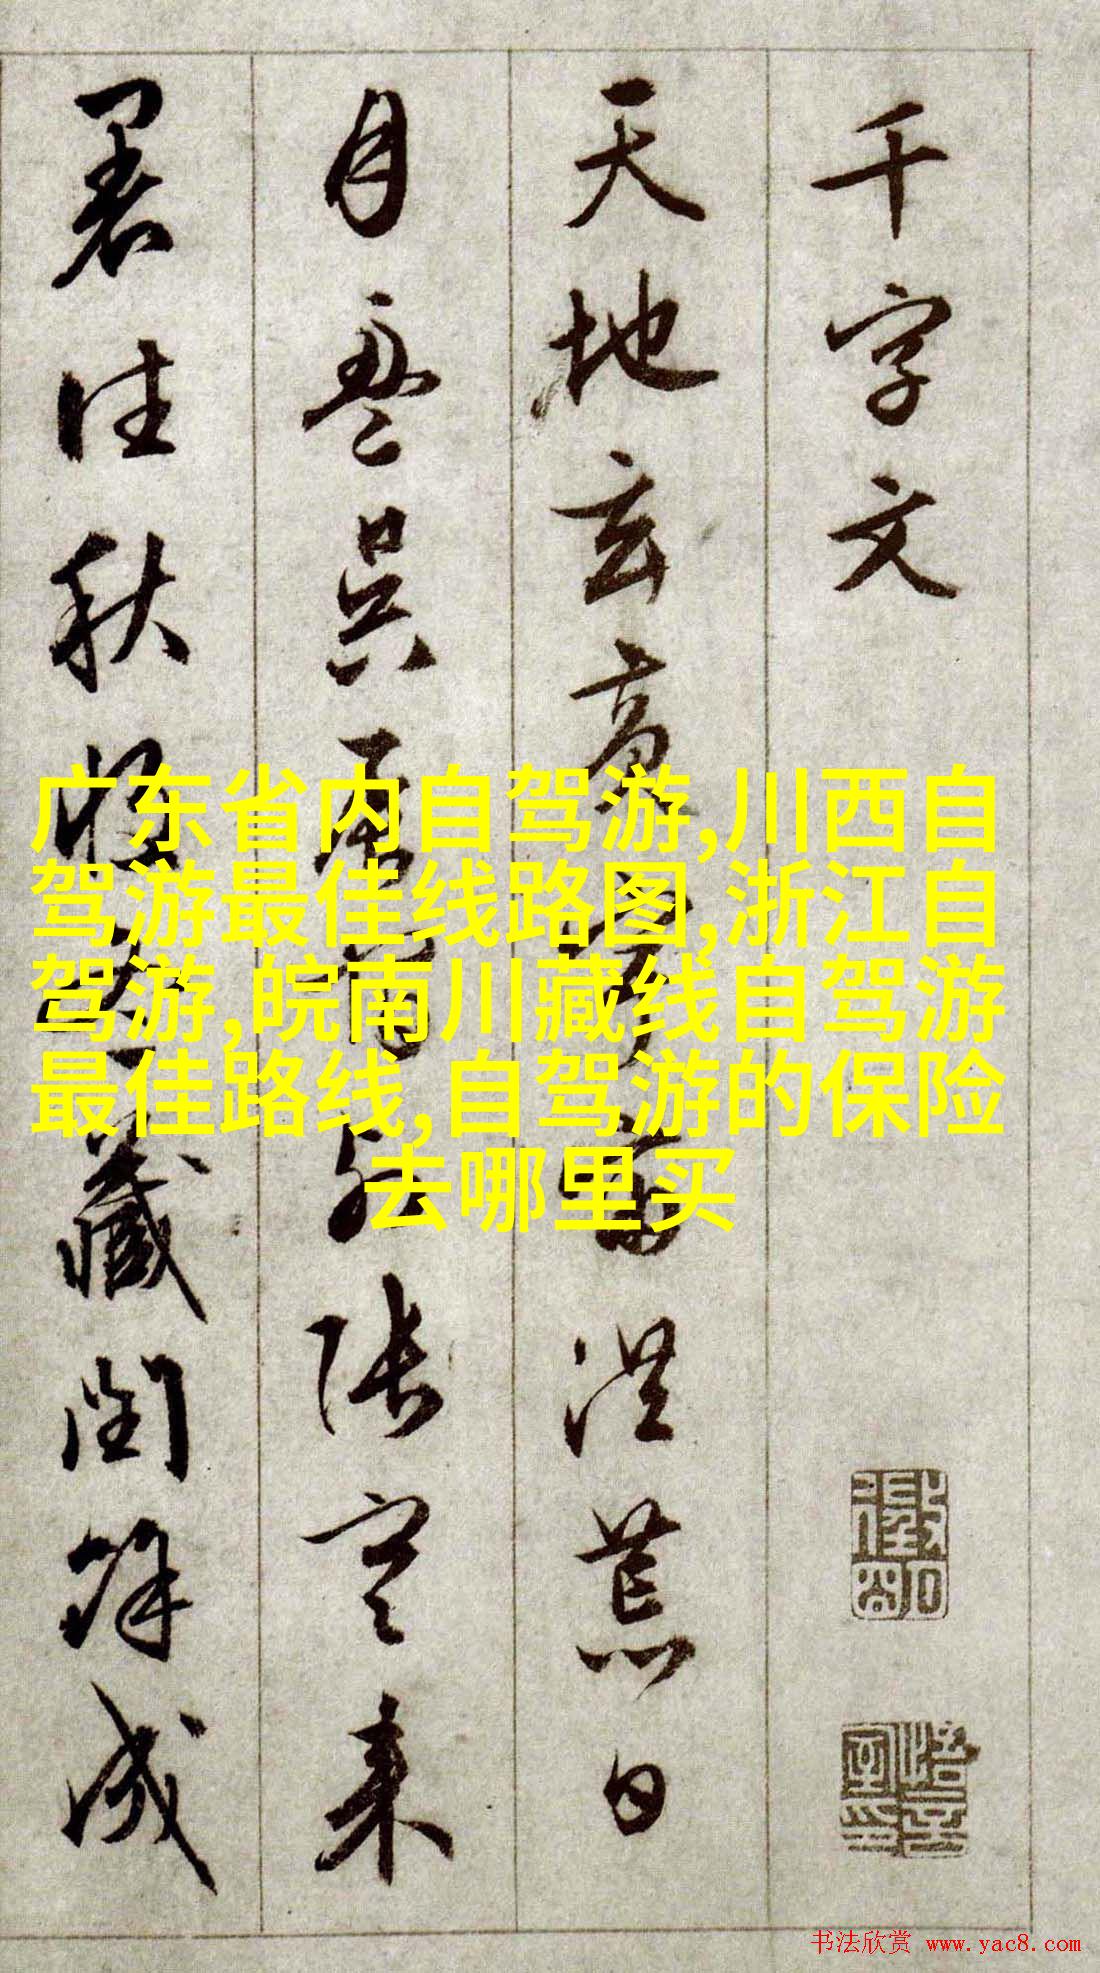 千字文
天地玄黄宇宙洪荒日
月盈昃辰宿列张寒来
暑往秋收冬藏闰余成
广东省内自驾游,川西自
驾游最佳线路图,浙江自
驾游,皖南川藏线自驾游
最佳路线,自驾游的保险
去哪里买
书法欣赏 www.yac8.com